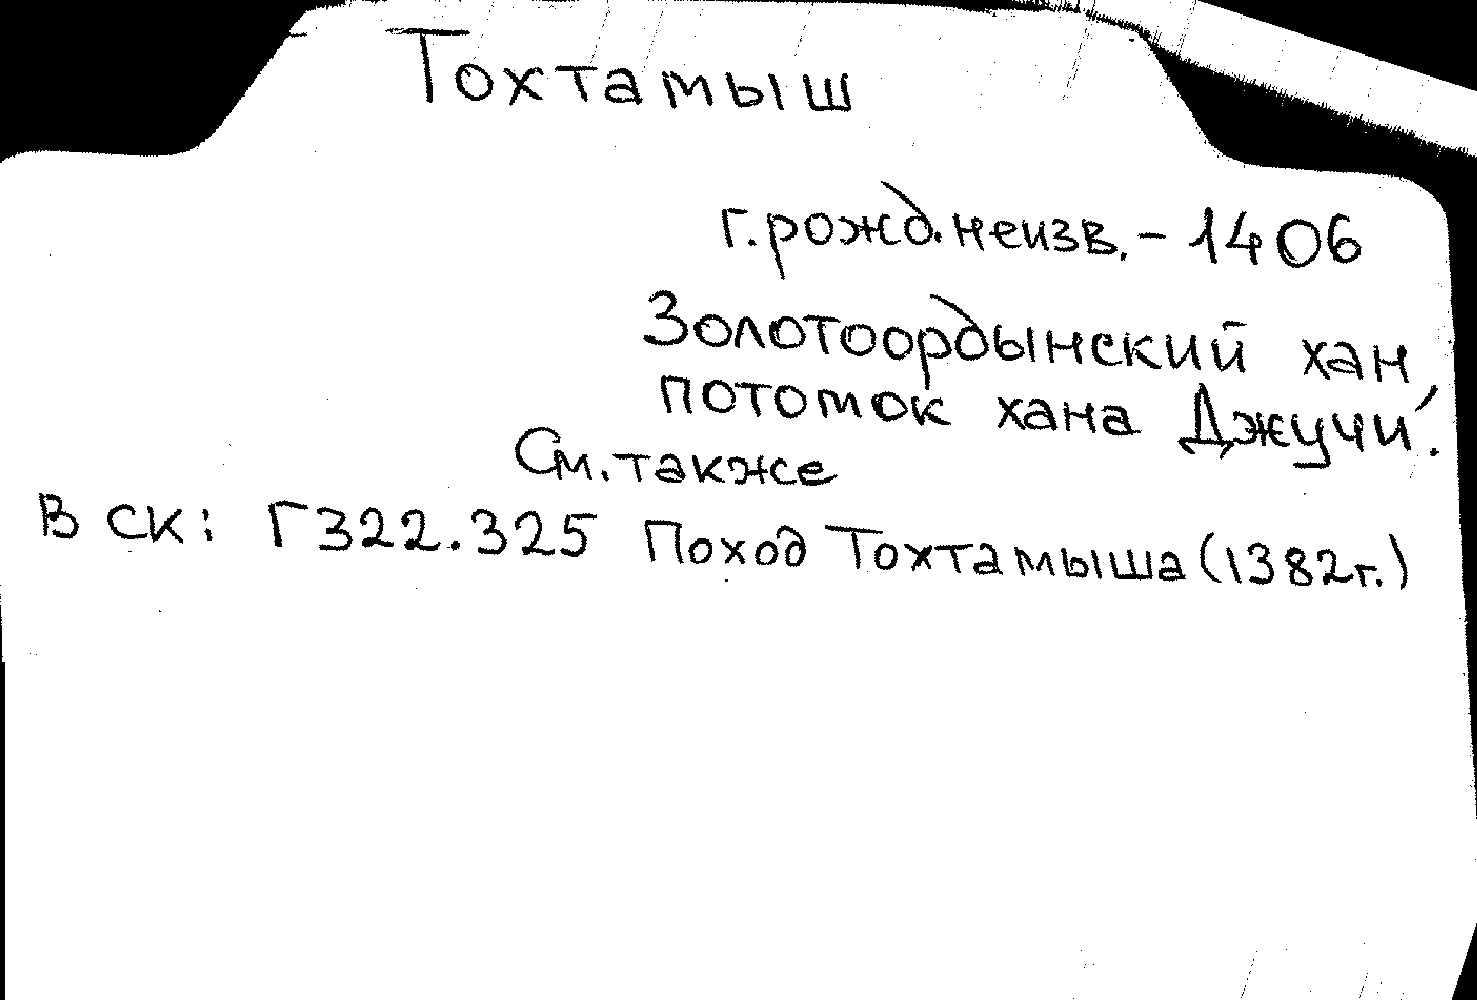 Тохтамыш
г. рожд. неизв. - 1406
Золотоордынский хан,
потомок хана Джучи.
См. также
В СК: Г322.325 Поход Тохтамыша (1382г.)